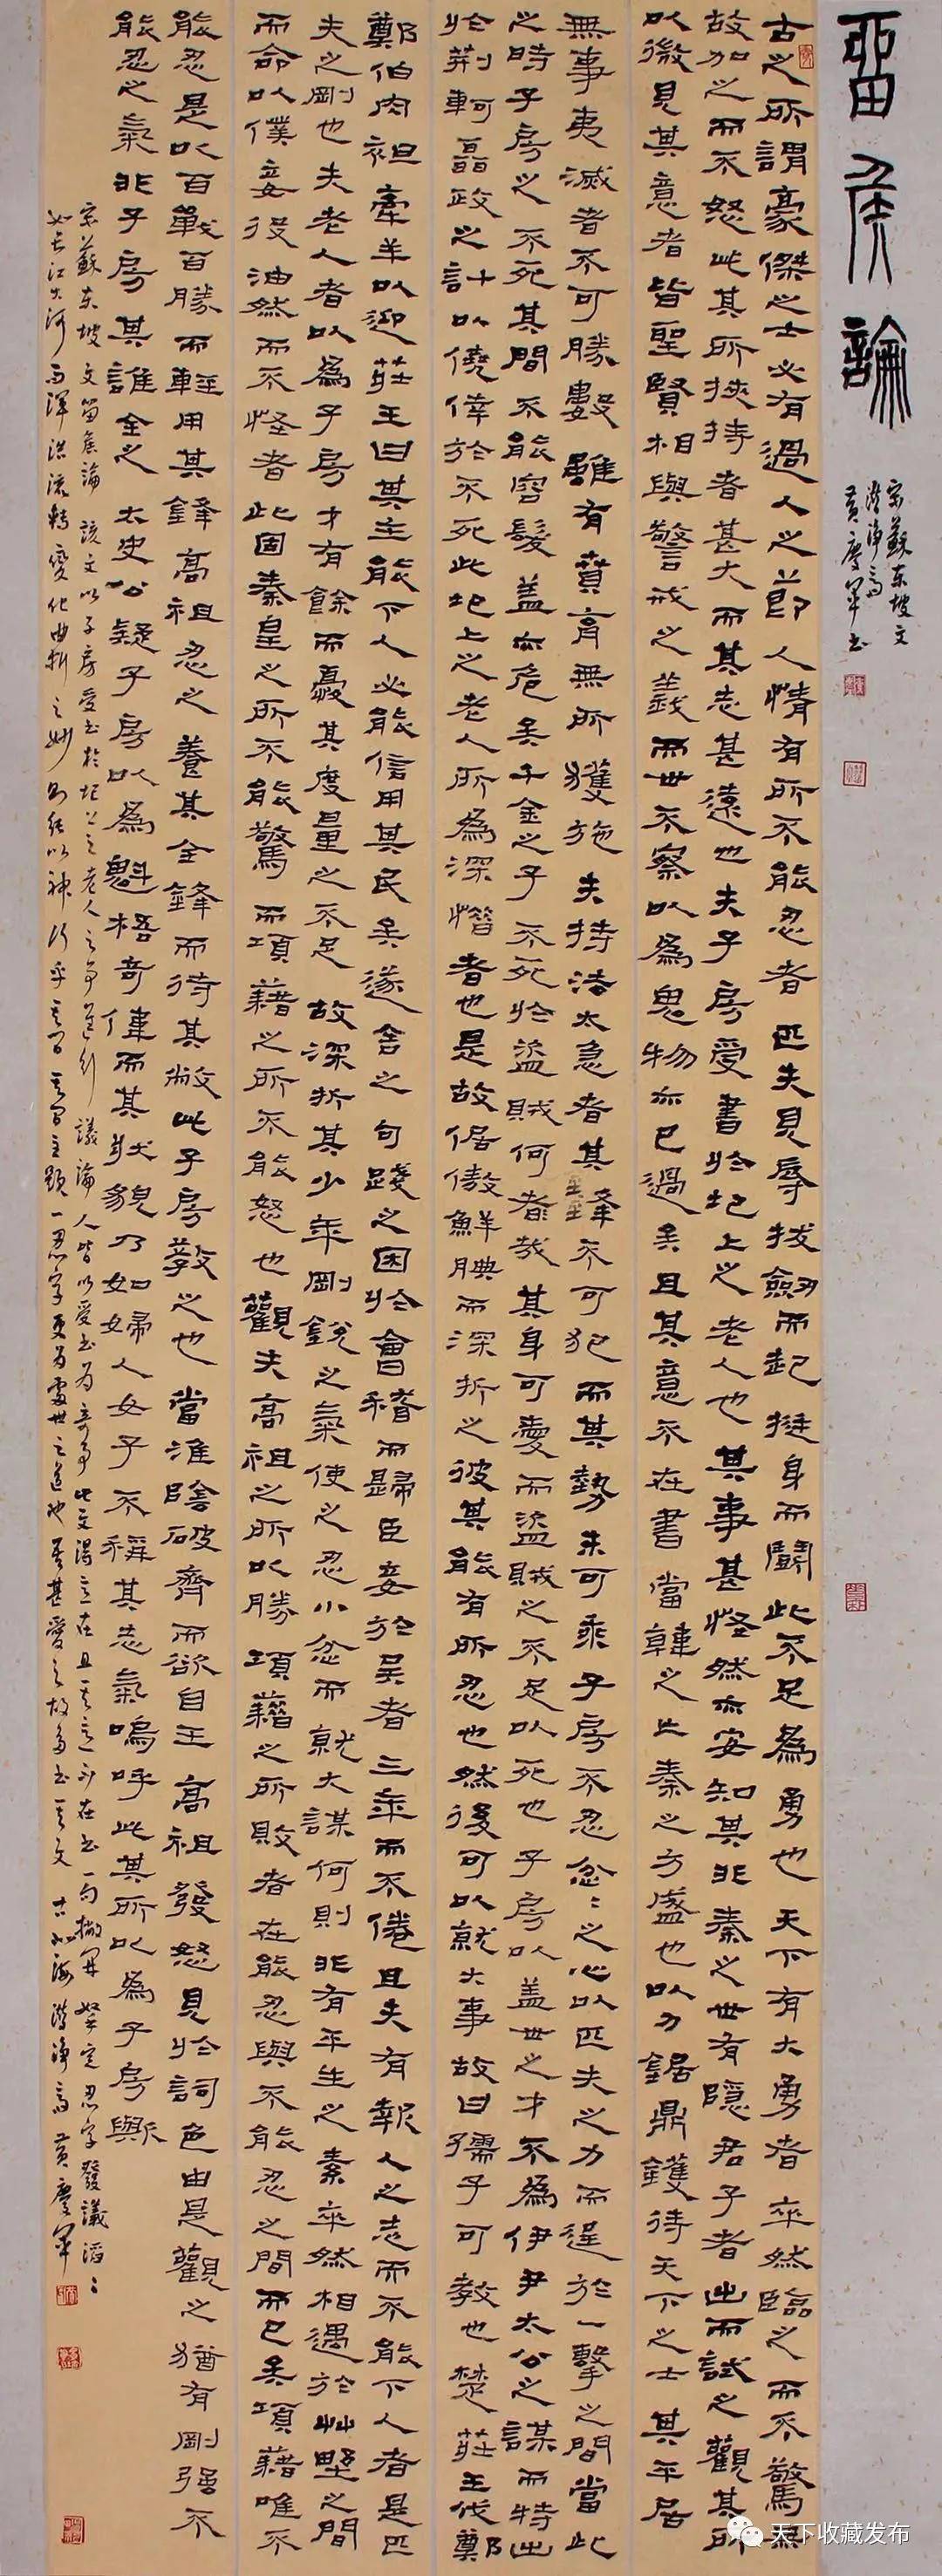 留侯論
宋蘇東坡文
黄慶軍书
古之所謂豪傑之士必有過人之節人情有所不能忍者匹夫見辱拔劍而起挺身而鬭此不足為勇也天下有大勇者卒然臨之而不驚無
故加之而不怒此其所挾持者甚大而其志甚遠也夫子房受書於圯上之老人也其事甚怪然亦安知其非秦之世有隱君子者出而試之觀其所
以微見其意者皆聖賢相與警戒之義而世不察以為鬼物亦已過矣且其意不在書當韓之亡秦之方盛也以刀鋸鼎鑊待天下之士其平居
無事夷滅者不可勝數雖有賁育無所獲施夫持法太急者其鋒不可犯而其勢未可乘子房不忍忿〻之心以匹夫之力而逞於一擊之間當此
之時子房之不死其間不能容髮蓋亦危矣千金之子不死於盜賊何者哉其身可愛而盜賊之不足以死也子房以蓋世之才不為伊尹太公之謀而特出
於荊軻聶政之計以僥倖於不死此圯上之老人所為深惜者也是故倨傲鮮腆而深折之彼其能有所忍也然後可以就大事故曰孺子可教也楚莊王伐鄭
鄭伯肉袒牽羊以迎莊王曰其主能下人必能信用其民矣遂舍之句踐之困於會稽而歸臣妾於吳者三年而不倦且夫有報人之志而不能下人者是匹
夫之剛也夫老人者以為子房才有餘而憂其度量之不足故深折其少年剛銳之氣使之忍小忿而就大謀何則非有平生之素卒然相遇於艸野之間
而命以僕妾役油然而不怪者此固秦皇之所不能驚而項籍之所不能怒也觀夫高祖之所以勝項籍之所敗者在能忍與不能忍之間而已矣項籍唯不
能忍是以百戰百勝而輕用其鋒高祖忍之養其全鋒而待其敝此子房教之也當淮陰破齊而欲自王高祖發怒見於詞色由是觀之猶有剛强不
能忍之氣非子房其誰全之太史公疑子房以為魁梧奇偉而其狀貌乃如婦人女子不稱其志氣嗚呼此其所以為子房歟
宋蘇東坡文留侯論該文以子房受书於圯上之老人之事議論人皆以受书為奇事此文得意在且其意不在书一句撇開拏定忍字發議滔〻
如長江大河而渾浩流轉變化曲折之妙則純以神行乎其間忍字更為處世之道也吾甚愛之故多书其文黄慶軍
天下收藏发布